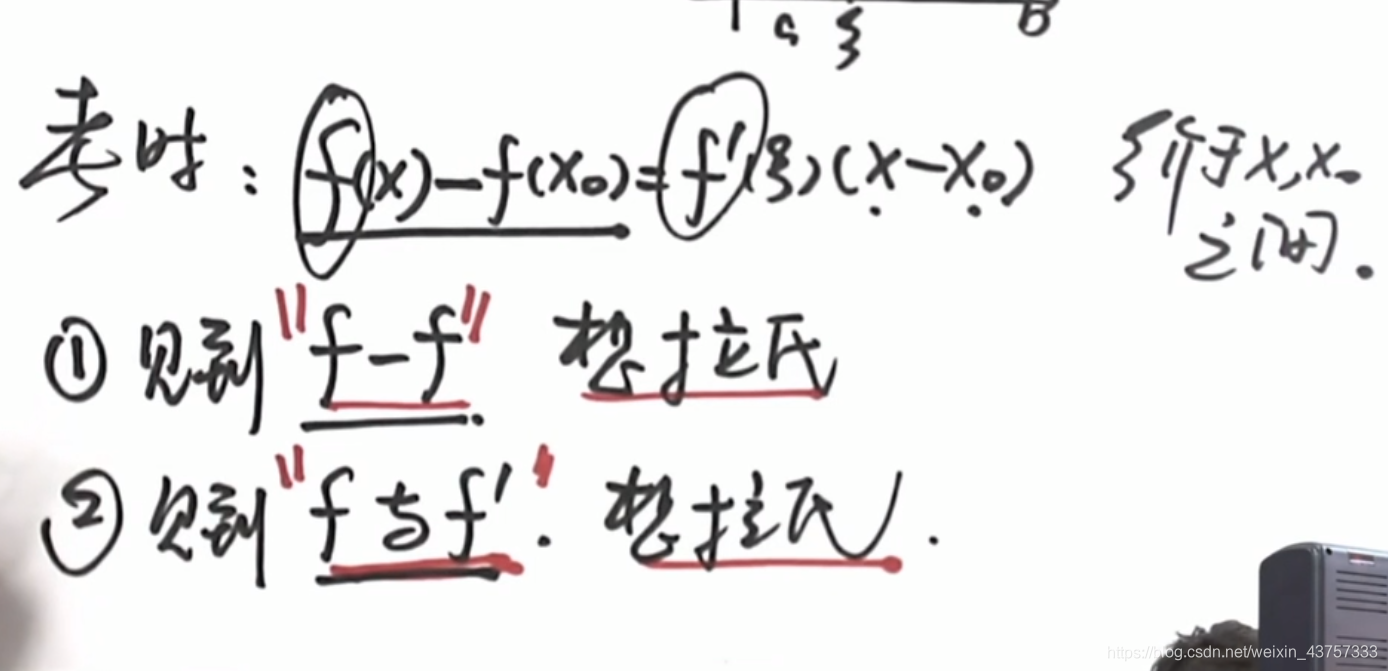 a ξ B
考时: f(x)-f(x₀)=f'(ξ)(x-x₀) ξ介于x,x₀
之间.
① 见到"f-f" 想拉氏
② 见到"f与f'". 想拉氏.
https://blog.csdn.net/weixin_43757333